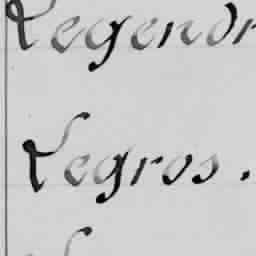 Legendr
Legros.